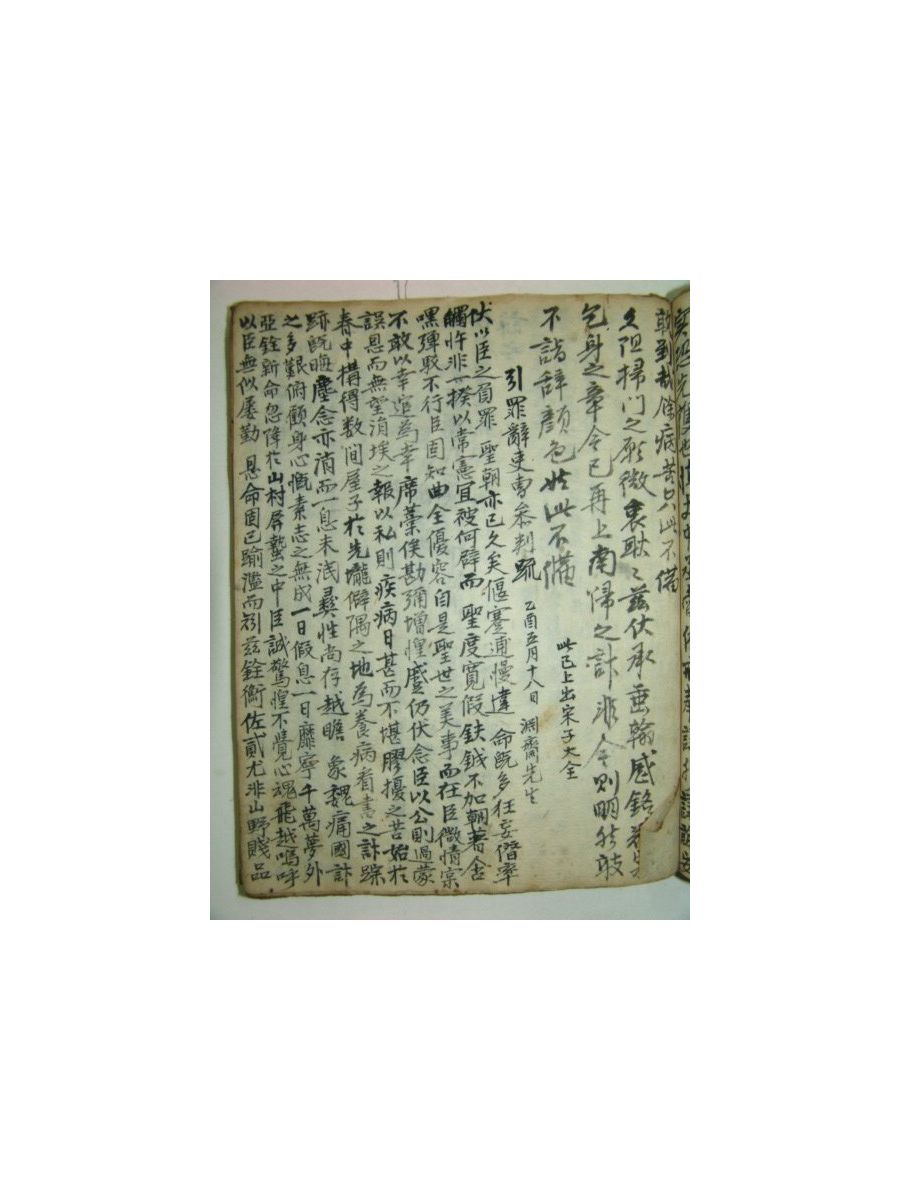 敢到哉餘病苦只此不備
久阻掃門之願微衷耿〻玆伏承垂翰感銘
乞身之章今已再上南歸之計非今則明然敢
不詣辭顔色於此不備
此已上出宋子大全
引罪辭吏曹參判䟽 乙酉五月十八日 淵齋先生
伏以臣之負罪 聖朝亦已久矣偃蹇逋慢違 命旣多狂妄僭率
觸忤非一揆以常憲冝被何辟而 聖度寬假鈇鉞不加朝著含
嘿彈駁不行臣固知曲全優容自是聖世之美事而在臣微情
不敢以幸逭為幸席藁俟勘彌增惶蹙仍伏念臣以公則過蒙
誤恩而無望涓埃之報以私則疾病日甚而不堪膠擾之苦始於
春中構得数间屋子於先壠僻隅之地為養病看書之計蹤
跡旣晦塵念亦消而一息未泯彛性尚存越瞻 象魏痛國計
之多艱俯顧身心慨素志之無成一日假息一日靡寧千萬夢外
亞銓新命忽降於山村屛蟄之中臣誠驚惶不覺心魂飛越嗚呼
以臣無似屡勤 恩命固已踰濫而矧玆銓衡佐貳尤非山野賤品